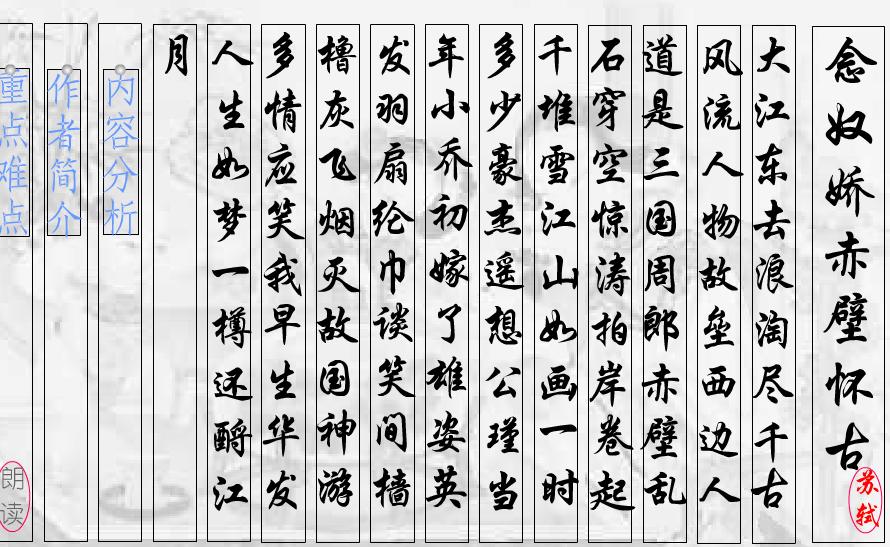 念奴娇赤壁怀古
苏轼
大江东去浪淘尽千古
风流人物故垒西边人
道是三国周郎赤壁乱
石穿空惊涛拍岸卷起
千堆雪江山如画一时
多少豪杰遥想公瑾当
年小乔初嫁了雄姿英
发羽扇纶巾谈笑间樯
橹灰飞烟灭故国神游
多情应笑我早生华发
人生如梦一樽还酹江
月
内容分析
作者简介
重点难点
朗读